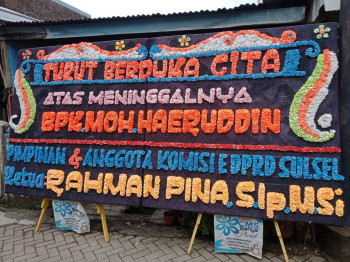 TURUT BERDUKA CITA
ATAS MENINGGALNYA
BPK.MOH.HAERUDDIN
PIMPINAN & ANGGOTA KOMISI E DPRD SULSEL
Ketua: RAHMAN PINA.SIp,MSi